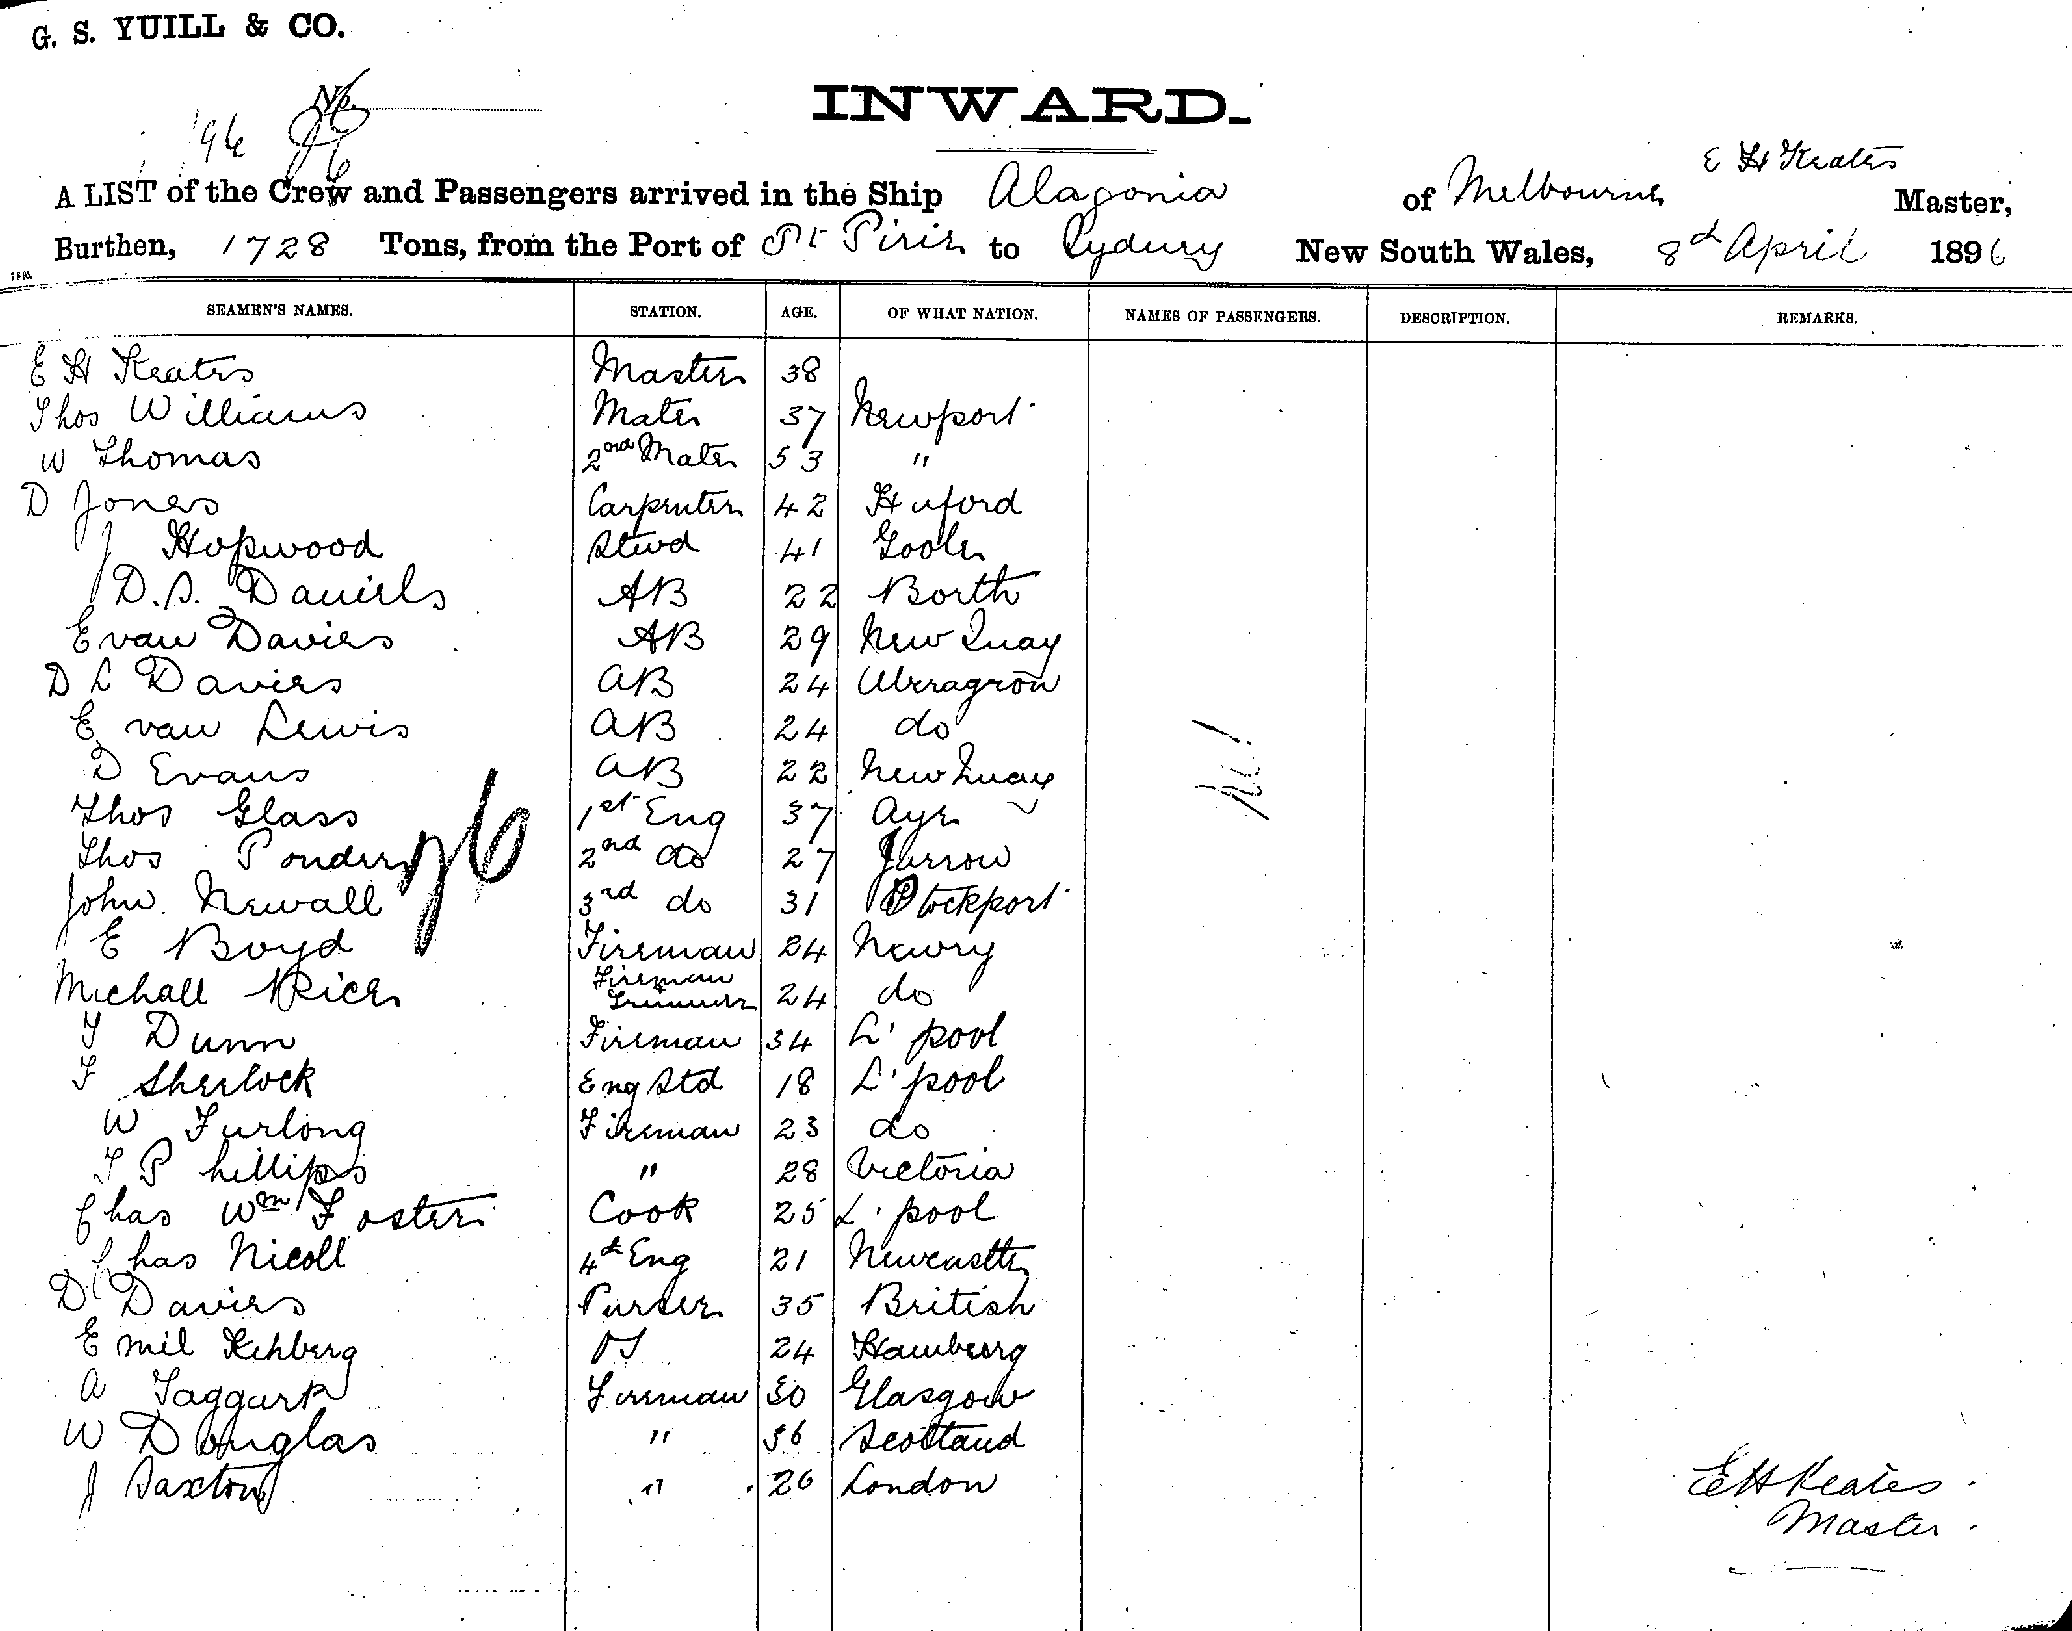 G. S. YUILL & CO.
No.
196
26
INWARD.
E H Keates
A LIST of the Crew and Passengers arrived in the Ship Alagonia of Melbourne Master,
Burthen, 1728 Tons, from the Port of Pt Pirie to Sydney New South Wales, 8th April 1896
SEAMEN'S NAMES. STATION. AGE. OF WHAT NATION. NAMES OF PASSENGERS. DESCRIPTION. REMARKS.
E H Keates Master 38
Thos Williams Mate 37 Newport
W Thomas 2nd Mate 53 "
D Jones Carpenter 42
J Hopwood Stwd 41 Goole
D. S. Daniels AB 22 Borth
Evan Davies AB 29 New Quay
D L Davies AB 24
Evan Lewis AB 24 do
D Evans AB 22 New Quay
Nil
Thos Glass 1st Eng 37 Ayr
Thos Ponder 2nd do 27 Jarrow
26
John Newall 3rd do 31 Stockport
E Boyd Fireman 24 Newry
Michall Rice Fireman Trimmer 24 do
T Dunn Fireman 34 L'pool
F Sherlock Eng Std 18 L'pool
W Furlong Fireman 23 do
T Phillips " 28 Victoria
Chas Wm Foster Cook 25 L'pool
Chas Nicoll 4th Eng 21 Newcastle
D Davies Purser 35 British
Emil Rehberg OS 24 Hamburg
A Taggart Fireman 30 Glasgow
W Douglas " 36 Scotland
J Saxton " 26 London
E H Keates
Master